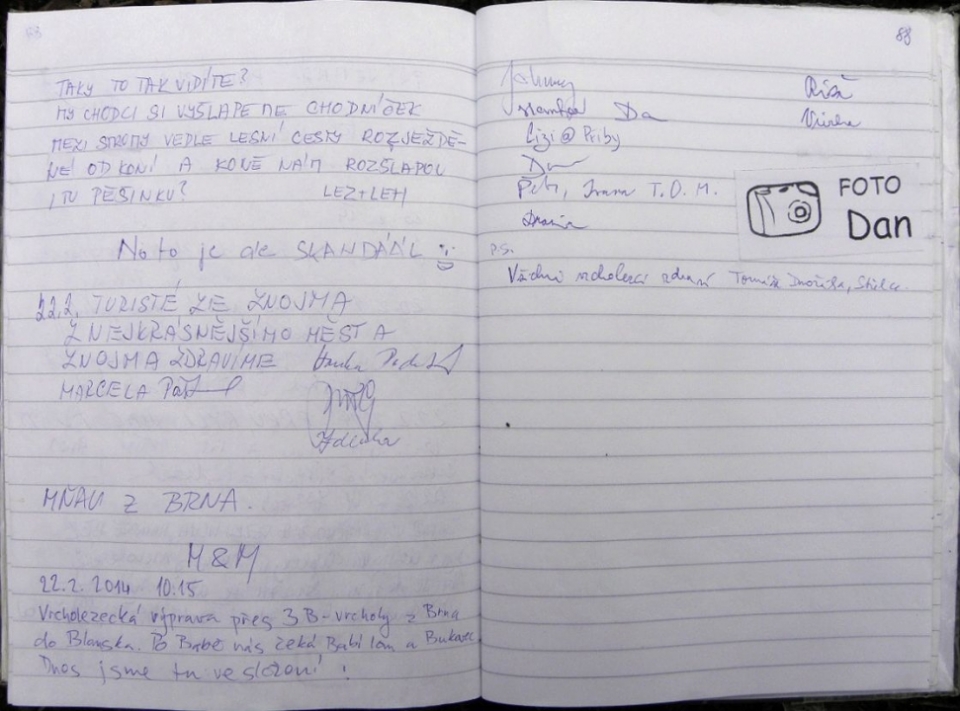 88
TAKY TO TAK VIDÍTE?
MY CHODCI SI VYŠLAPEME CHODNÍČEK
MEZI STROMY VEDLE LESNÍ CESTY ROZJEŽDĚ-
NÉ OD KONÍ A KONĚ NÁM ROZŠLAPOU
I TU PĚŠINKU? LEZ+LEH
No to je ale SKANDÁÁL
22.2. TURISTÉ ZE ZNOJMA
Z NEJKRÁSNĚJŠÍHO MĚSTA
ZNOJMA ZDRAVÍME Hanka
MARCELA
MŇAU Z BRNA.
M&M
22.2.2014 10.15
Vrcholezecká výprava přes 3 B-vrcholy z Brna
do Blanska. Po Babě nás čeká Babí lom a Bukovec
Dnes jsme tu ve složení:
Johnny
Da
Cigi@Priby
Petr, Ivana T.O.M.
P.S.
Všechni vrcholezci zdraví Tomáše
FOTO
Dan